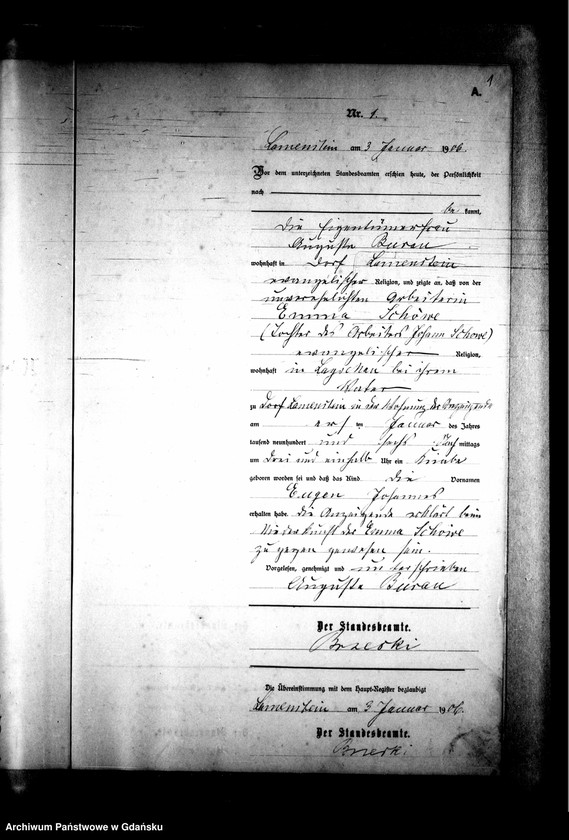 A.
1
Nr. 1.
Lamenstein am 3 Januar 1906.
Vor dem unterzeichneten Standesbeamten erschien heute, der Persönlichkeit
nach
be kannt,
die Eigentümerfrau
Auguste Buran
wohnhaft in Dorf Lamenstein
evangelischer Religion, und zeigte an, daß von der
unverehelichten Arbeiterin
Emma Schöwe
(Tochter des Arbeiters Johann Schöwe)
evangelischer Religion,
wohnhaft in bei ihrem
Vater
zu Dorf Lamenstein in der Wohnung der Anzeigende
am ersten Januar des Jahres
tausend neunhundert und sechs mittags
um drei und einhalb Uhr ein Knabe
geboren worden sei und daß das Kind die Vornamen
Eugen Johannes
erhalten habe. Die Anzeigende erklärt beim
Niederkunft der Emma Schöwe
zu gegen gewesen sein.
Vorgelesen, genehmigt und unterschrieben
Auguste Buran
Der Standesbeamte.
Brzeski
Die Übereinstimmung mit dem Haupt-Register beglaubigt
Lamenstein am 3 Januar 1906.
Der Standesbeamte.
Brzeski
Archiwum Państwowe w Gdańsku